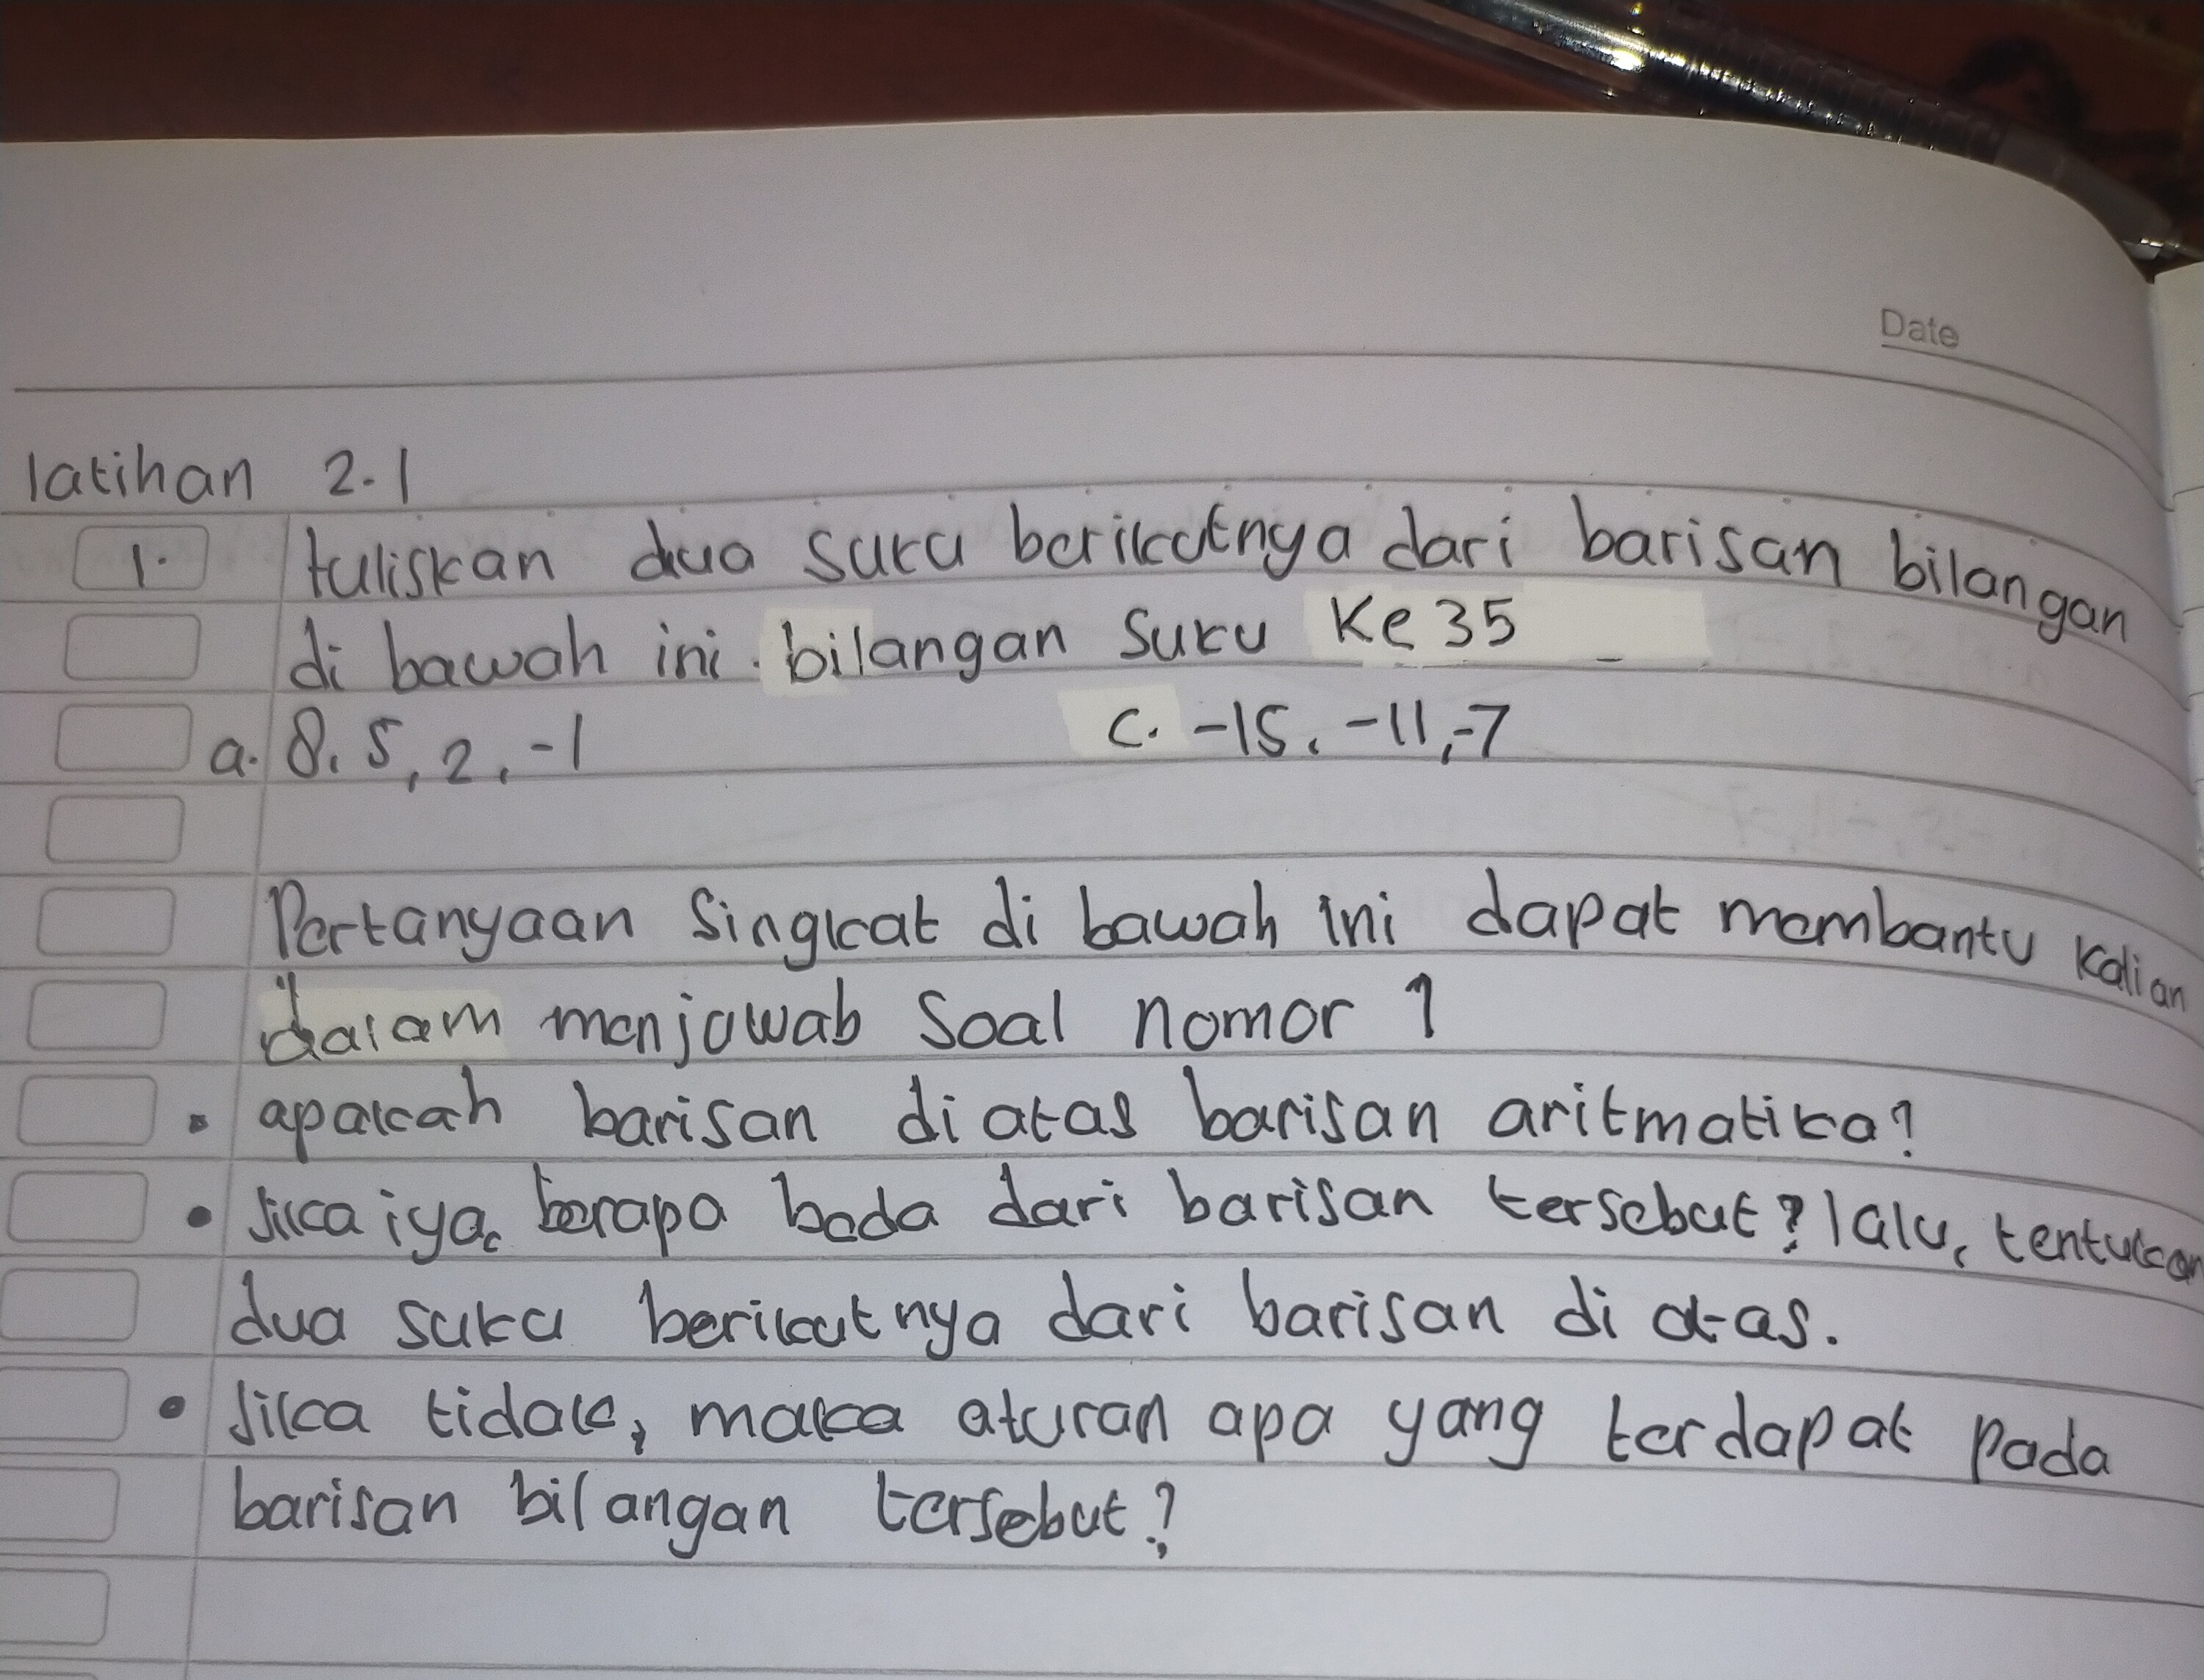 Date
latihan 2.1
1. tuliskan dua suku berikutnya dari barisan bilangan
di bawah ini. bilangan suku Ke 35
a. 8, 5, 2, -1 c. -15, -11, -7
Pertanyaan singkat di bawah ini dapat membantu kalian
dalam menjawab soal nomor 1
• apakah barisan di atas barisan aritmatika?
• Jika iya, berapa beda dari barisan tersebut? lalu, tentukan
dua suku berikutnya dari barisan di atas.
• Jika tidak, maka aturan apa yang terdapat pada
barisan bilangan tersebut?